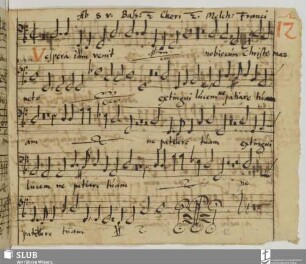 Ab 8 v. Bass: 2 Chori Melch: Franci
12
Vespera iam venit nobiscum Christe ma
neto extingui lucem ne patiare tuam
am ne patiare tuam extingui
lucem ne patiare tuam ne
patiare tuam
SLUB